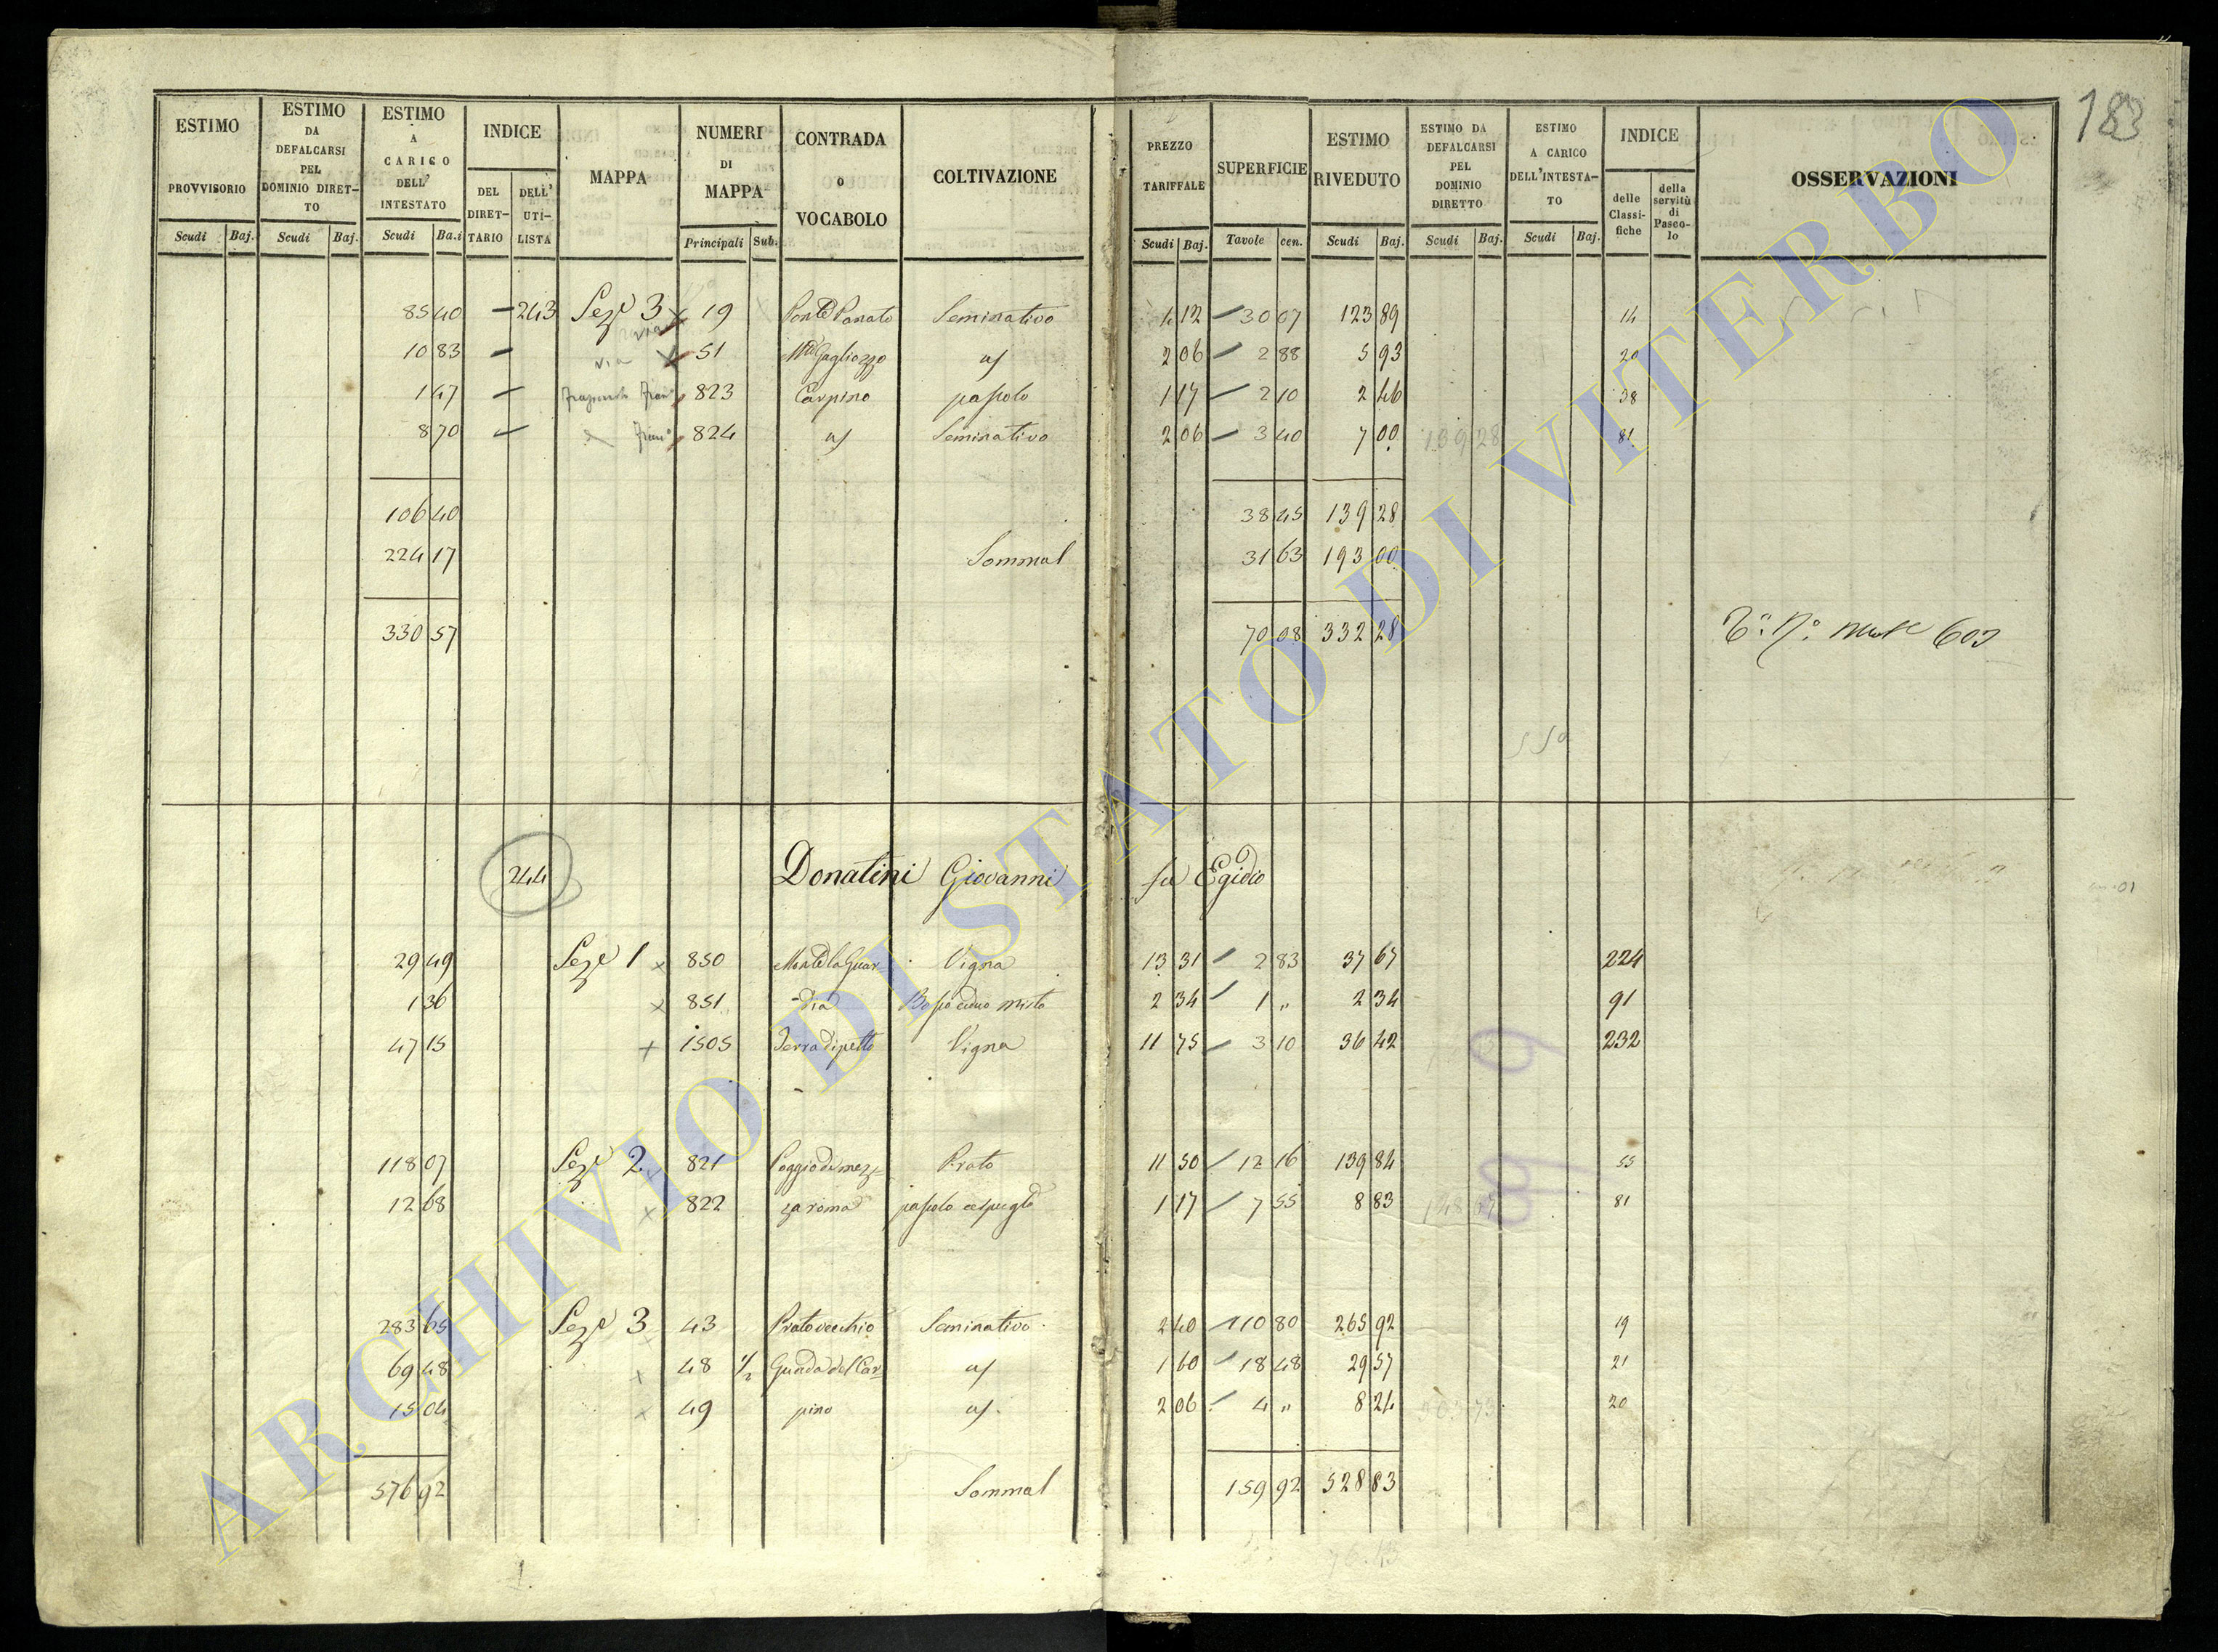 183
ESTIMO PROVVISORIO Scudi Baj.
ESTIMO DA DEFALCARSI PEL DOMINIO DIRET-TO Scudi Baj.
ESTIMO A CARICO DELL' INTESTATO Scudi Ba.i
INDICE DEL DIRET-TARIO DELL' UTI-LISTA
MAPPA
NUMERI DI MAPPA Principali Sub.
CONTRADA O VOCABOLO
COLTIVAZIONE
PREZZO TARIFFALE Scudi Baj.
SUPERFICIE Tavole cen.
ESTIMO RIVEDUTO Scudi Baj.
ESTIMO DA DEFALCARSI PEL DOMINIO DIRETTO Scudi Baj.
ESTIMO A CARICO DELL'INTESTA-TO Scudi Baj.
INDICE delle Classi-fiche della servitù di Pasco-lo
OSSERVAZIONI
85 40 — 243 Seze 3 19 Seminativo 4 12 30 07 123 89 14
10 83 — via 51 Gagliozzo 2 06 2 88 5 93 20
1 47 — 823 Carpino pascolo 1 17 2 10 2 46 38
8 70 — 824 Seminativo 2 06 3 40 7 00 139 28 81
106 40 38 45 139 28
224 17 Sommal 31 63 193 00
330 57 70 08 332 28
244 Donatini Giovanni fu Egidio
29 49 Seze 1 850 Monte la Guar- Vigna 13 31 2 83 37 67 224
1 36 851 dia Bosco ceduo misto 2 34 1 „ 2 34 91
47 15 1505 Terra di petto Vigna 11 75 3 10 36 42 232
118 07 Seze 2 821 Poggio di mez- Prato 11 50 12 16 139 84 55
12 68 822 za roma pascolo cespuglo 1 17 7 55 8 83 81
283 65 Seze 3 43 Prato vecchio Seminativo 2 40 110 80 265 92 19
69 48 48 1/2 Guada del Car- 1 60 18 48 29 57 21
15 04 49 pino 2 06 4 „ 8 24 20
576 92 Sommal 159 92 528 83
ARCHIVIO DI STATO DI VITERBO